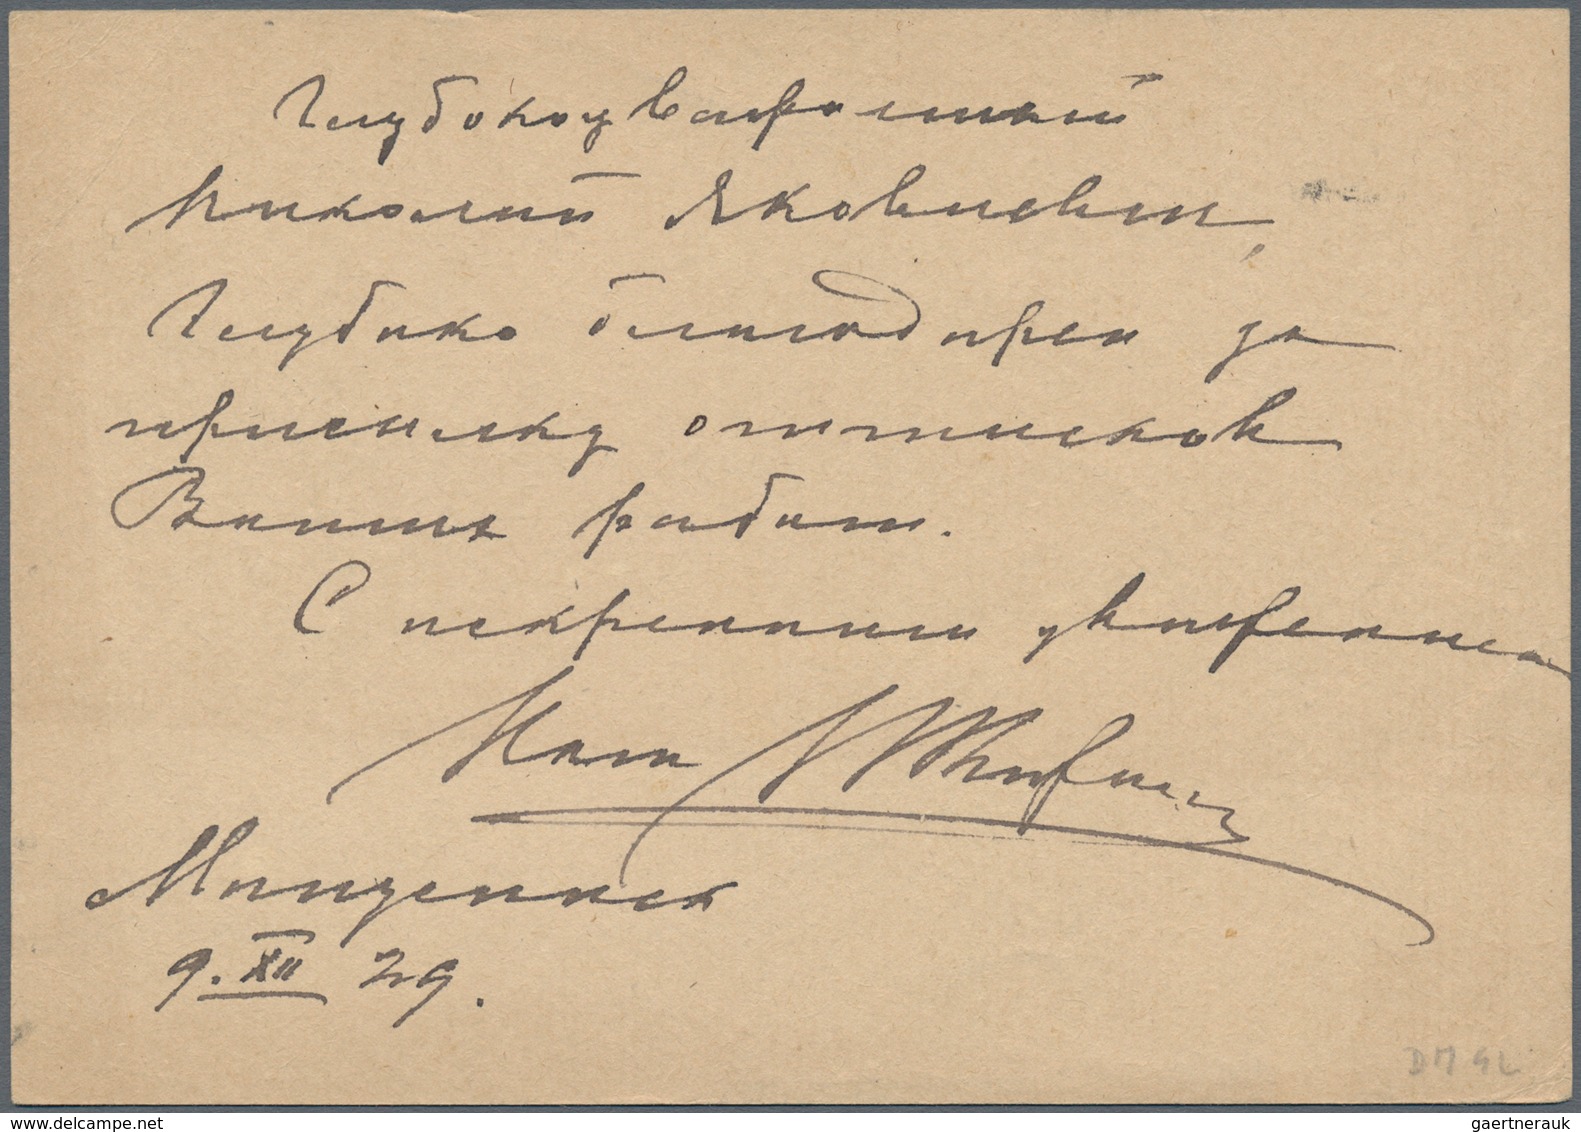 Глубокоуважаемый
Николай Яковлевич,
Глубоко благодарен за
присылку оттисков
Ваших работ.
С искренним уважением
9.XII 29.
DM 42
delcampe.net
gaertnerauk